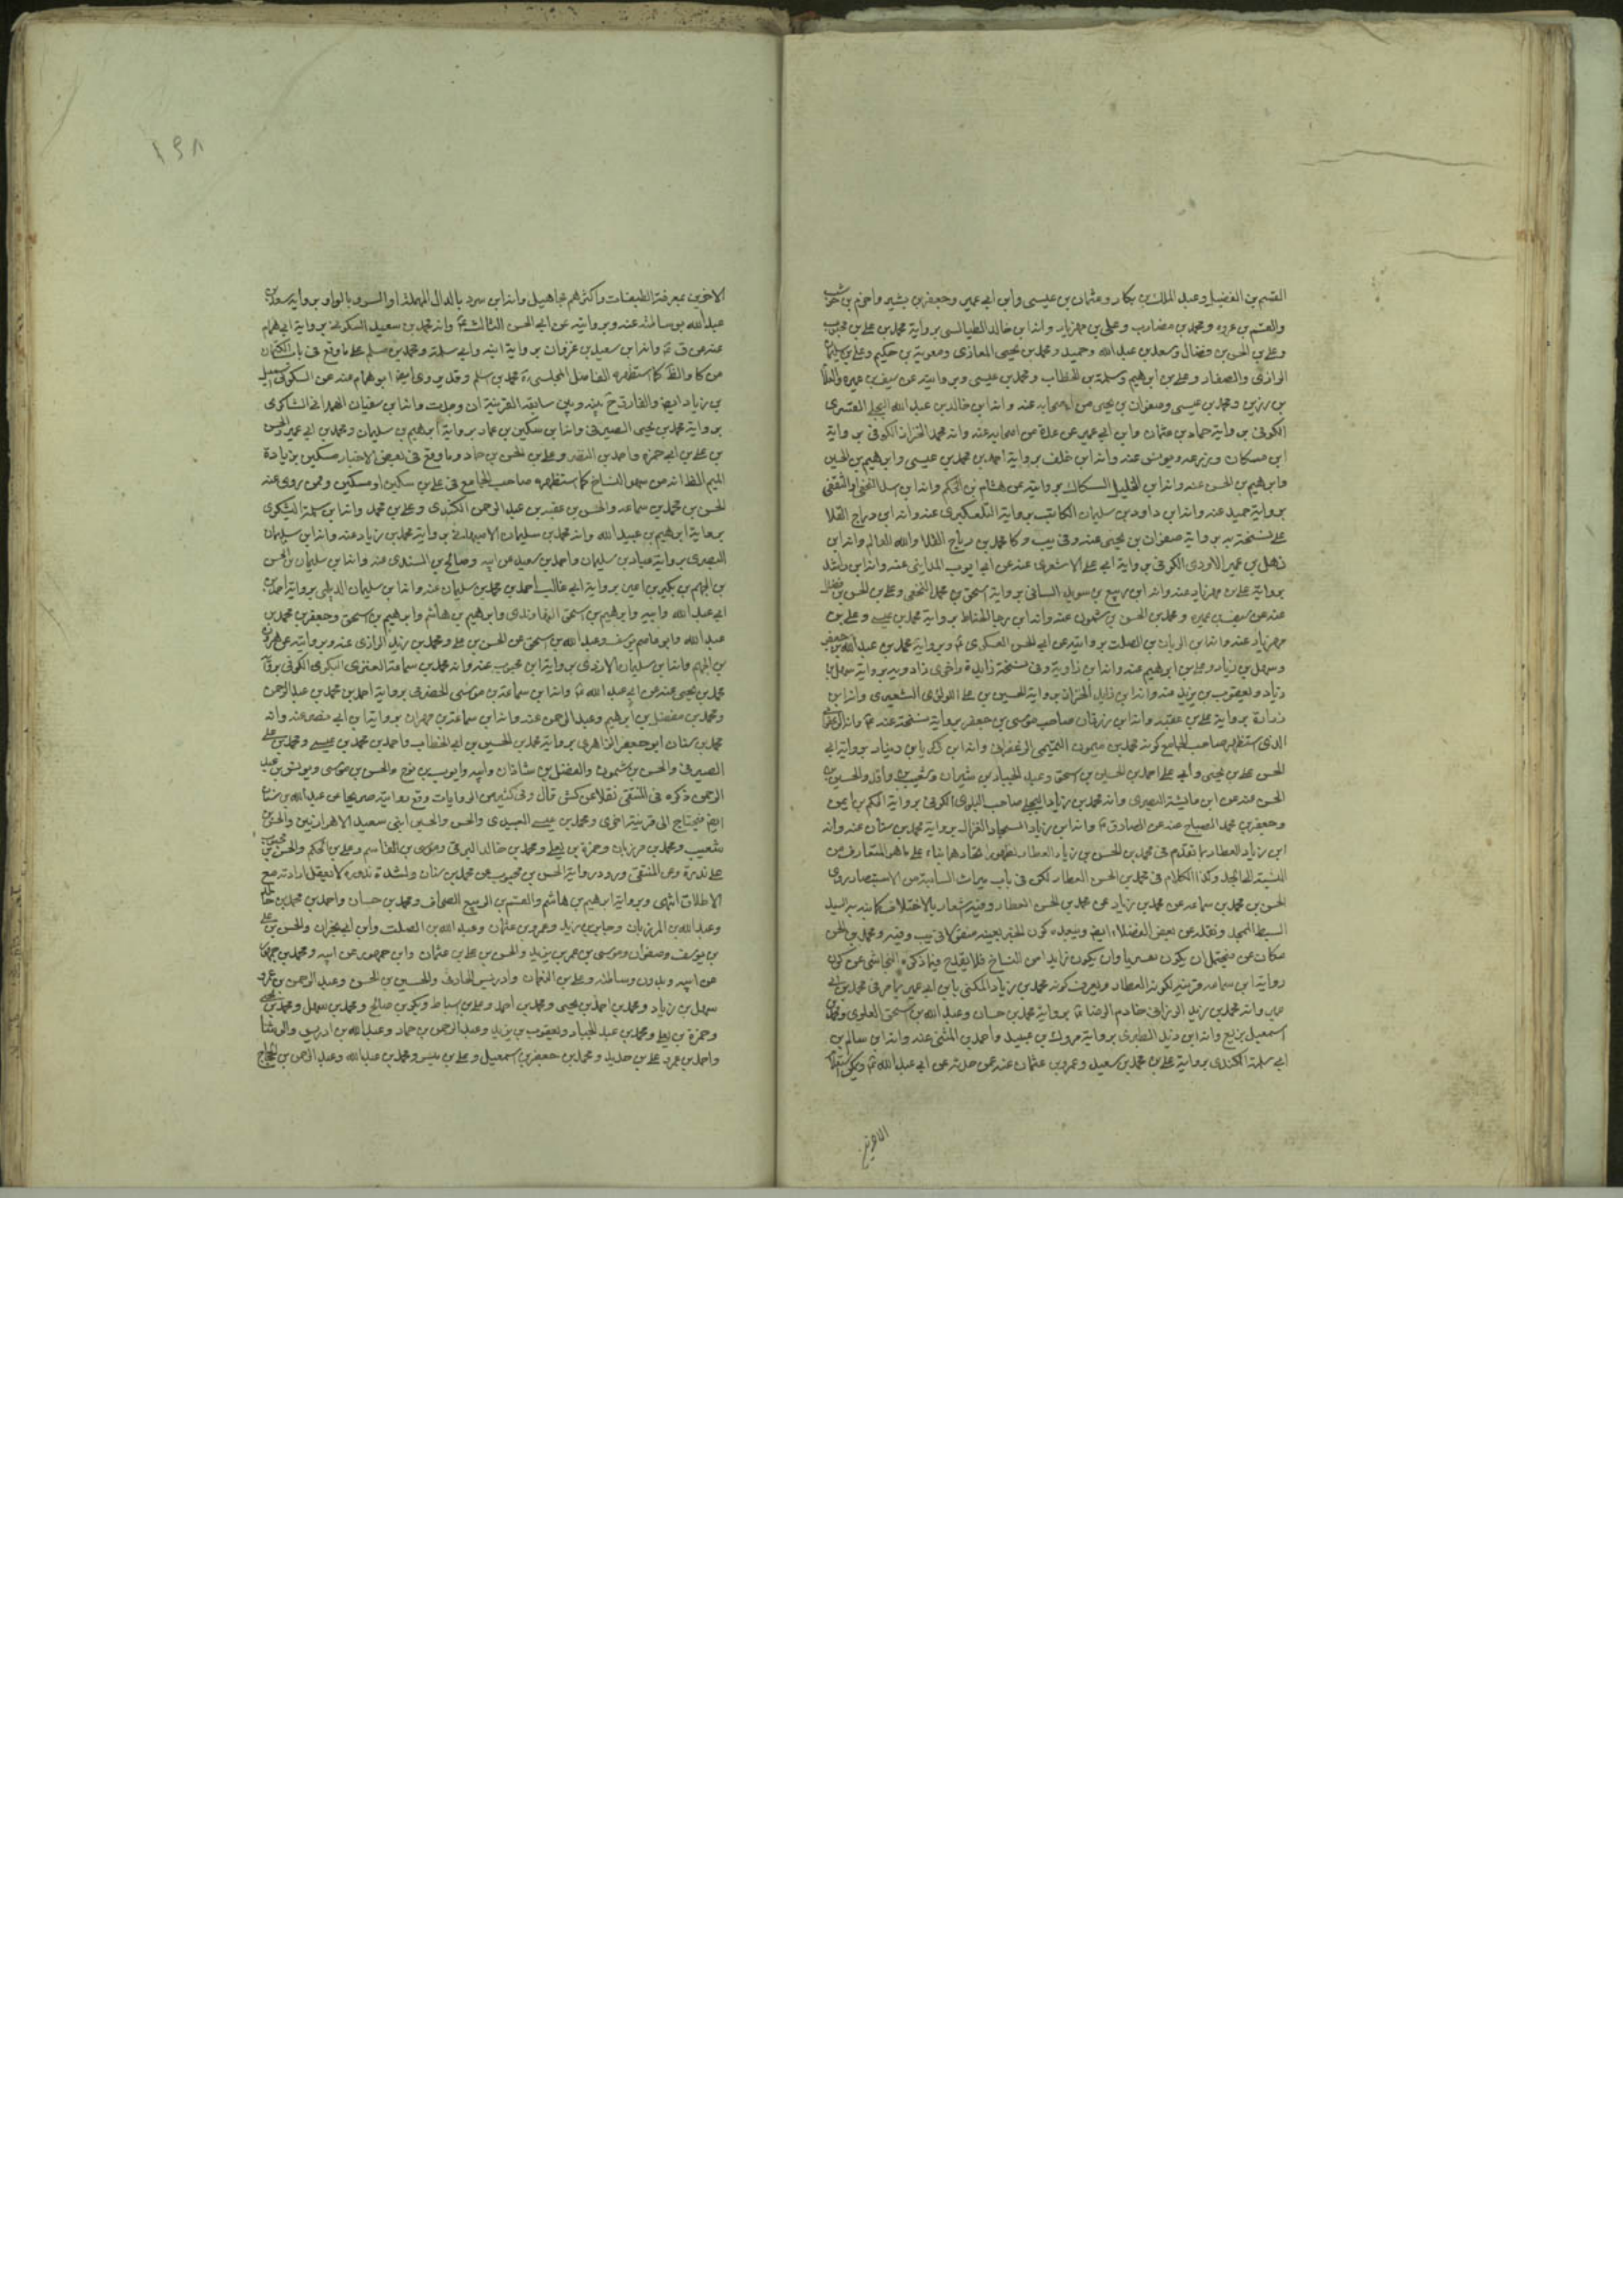 القسم بن الفضيل وعبد الملك بن بكار وعثمان بن عيسى وابن ابي عمير وجعفر بن بشير واخرم بن
والقسم بن عروه ومحمد بن مضارب وعلى بن مهزيار وانه ابن خالد الطيالسى برواية محمد بن على بن محبوب
وعلى بن الحسن بن فضال وسعد بن عبد الله وحميد ومحمد بن يحيى المعاذى ومعوية بن حكيم وعلى بن سليمان
الرازى والصفار وعلى بن ابرهيم وسلمة بن الخطاب ومحمد بن عيسى وبروايته عن سيف بن عميره والعلا
بن رزين ومحمد بن عيسى وصفوان بن يحيى عن اصحابه عنه وانه ابن خالد بن عبد الله البجلى القسرى
الكوفى برواية حماد بن عثمان وابن ابي عمير عن عدة من اصحابه عنه وانه محمد الخزاز الكوفى برواية
ابن مسكان ويونس عنه وانه ابن خلف برواية احمد بن محمد بن عيسى وابرهيم بن الحسين
وابرهيم بن الحسن عنه وانه ابن الخليل السكاك بروايته عن هشام بن الحكم وانه ابن
برواية حميد عنه وانه ابن داود بن سليمان الكاتب برواية التلعكبرى عنه وانه ابن دراج القلا
على نسخة برواية صفوان بن يحيى عنه وفى يب وكا محمد بن رباح القلا والله العالم وانه ابن
ذهل بن عمير الازدى الكوفى برواية ابي على الاشعرى عنه عن ابي ايوب المداينى عنه وانه ابن راشد
برواية على بن مهزيار عنه وانه ابن ربيع بن سويد السائى برواية اسحق بن محمد النخعى وعلى بن الحسن بن فضال
عنه عن سيف بن عميره ومحمد بن الحسن بن شمون عنه وانه ابن رجا الخناط برواية محمد بن عيسى وعلى بن
مهزيار عنه وانه ابن الريان بن الصلت بروايته عن ابي الحسن العسكرى ع وبرواية محمد بن عبد الله بن جعفر
وسهل بن زياد وعلى بن ابرهيم عنه وانه ابن زاوية وفى نسخة زايدة واخرى زادويه برواية سهل بن
زياد ويعقوب بن يزيد عنه وانه ابن زايد الخزاز برواية الحسين بن على اللولؤى الشعيرى وانه ابن
زرارة برواية على بن عقبه وانه ابن زرقان صاحب موسى بن جعفر برواية نسخة عنه ع وانه الزعفرانى
الذى استظهر صاحب الجامع كونه محمد بن ميمون التميمى الزعفرانى وانه ابن زكريا بن دينار برواية ابي
الحسن على بن يحيى وابي على احمد بن الحسين بن اسحق وعبد الجبار بن شيران وشعيب بن واقد والحسين بن
الحسن عنه عن ابن عايشة البصرى وانه محمد بن زياد البجلى صاحب الكوفى برواية الحكم بن ايمن
وجعفر بن محمد الصباح عنه عن الصادق ع وانه ابن زياد السجاد الغزال برواية محمد بن سنان عنه وانه
ابن زياد العطار بما تقدم فى محمد بن الحسن بن زياد العطار بظهور اتحادهما بناء على ما هو المتعارف من
النسبة الى الجد وكذا الكلام فى محمد بن الحسن العطار لكن فى باب ميراث السائبة من الاستبصار روى
الحسن بن محمد بن سماعه عن محمد بن زياد عن محمد بن الحسن العطار وفيه شعار بالاختلاف كما نبه به السيد
السبط الممجد ونقله عن بعض الفضلاء ايضا ويبعده كون الخبر بعينه منقولا فى يب وفيه ومحمد بن الحسن
مكان عن فيحتمل ان يكون تصريا وان يكون زايدا من النساخ فلا يقدح فيما ذكره النجاشى عن كون
رواية ابن سماعه قرينة لكونه العطار ويعرف كونه محمد بن زياد المكنى بابن ابي عمير بما مر فى محمد بن ابي
عمير وانه محمد بن زيد الرزامى خادم الرضا ع برواية محمد بن حسان وعبد الله بن اسحق العلوى ومحمد بن
اسمعيل بن بزيع وانه ابن زيد الطبرى برواية مروك بن عبيد واحمد بن المثنى عنه وانه ابن سالم بن
ابي سلمة الكندى برواية على بن محمد بن سعيد وعمرو بن عثمان عنه عمن حدثه عن ابي عبد الله ع
١٩٨
الاخرين بمعرفة الطبقات واكثرهم مجاهيل وانه ابن سرد بالدال المهملة او السرو بالواو برواية سعد بن
عبد الله بوساطته عنه وبروايته عن ابي الحسن الثالث ع وانه محمد بن سعيد السكونى برواية ابي همام
عنه عن ق ع وانه ابن سعيد بن غزوان برواية ابنه وابي سلمة ومحمد بن مسلم على ما وقع فى باب الكتمان
من كا والظ كما استظهره الفاضل المجلسى محمد بن سلم وقد روى ايضا ابو همام عنه عن السكونى اسمعيل
بن زياد ايضا والفارق ح بينه وبين سابقه القرينة ان وجدت وانه ابن سفيان الهمدانى الشاكرى
برواية محمد بن يحيى الصيرفى وانه ابن سكين بن عمار برواية ابرهيم بن سليمان ومحمد بن ابي عمير والحسن
بن على بن ابي حمزه واحمد بن النضر وعلى بن الحسن بن حماد وما وقع فى بعض الاخبار مسكين بزيادة
الميم الظ انه من سهو النساخ كما استظهره صاحب الجامع فى على بن سكين او مسكين وممن روى عنه
الحسن بن محمد بن سماعه والحسن بن عقبه بن عبد الرحمن الكندى وعلى بن محمد وانه ابن سلمة اليشكرى
برواية ابرهيم بن عبيد الله وانه محمد بن سليمان الاصبهانى برواية محمد بن زياد عنه وانه ابن سليمان
البصرى برواية عباد بن سليمان واحمد بن سعيد عن ابيه وصالح بن السندى عنه وانه ابن سليمان بن الحسن
بن الجهم بن بكير بن اعين برواية ابي غالب احمد بن محمد بن سليمان عنه وانه ابن سليمان الديلمى برواية احمد بن
ابي عبد الله وابيه وابرهيم بن اسحق النهاوندى وابرهيم بن هاشم وابرهيم بن اسحق وجعفر بن محمد بن
عبد الله وابو عاصم يوسف وعبد الله بن اسحق عن الحسن بن على ومحمد بن زيد الرازى عنه وبروايته عن هرون
بن الجهم وانه ابن سليمان الازدى برواية ابن محبوب عنه وانه محمد بن سماعة العنزى البكرى الكوفى برواية
محمد بن يحيى عنه عن ابي عبد الله ع وانه ابن سماعة بن موسى الحضرمى برواية احمد بن محمد بن عبد الرحمن
ومحمد بن مفضل بن ابرهيم وعبد الرحمن عنه وانه ابن سماعة بن مهران برواية ابن ابي نصر عنه وانه
محمد بن سنان ابو جعفر الزاهرى برواية محمد بن الحسين بن ابي الخطاب واحمد بن محمد بن عيسى ومحمد بن على
الصيرفى والحسن بن شمون والفضل بن شاذان وابيه وايوب بن نوح والحسن بن موسى ويونس بن عبد
الرحمن ذكره فى المنتقى نقلا عن كش قال وفى كثير من الروايات وقع روايته صريحا عن عبد الله بن سنان
ايضا فيحتاج الى قرينة اخرى ومحمد بن عيسى العبيدى والحسن والحسين ابنى سعيد الاهوازيين والحسن بن
شعيب ومحمد بن مرزبان وحمزة بن يعلى ومحمد بن خالد البرقى وموسى بن القاسم وعلى بن الحكم والحسن بن محبوب
على ندرة وعن المنتقى ورود رواية الحسن بن محبوب عن محمد بن سنان ولشدة ندوره كا لا يعقل ارادته مع
الاطلاق انتهى وبرواية ابرهيم بن هاشم والقسم بن الربيع الصحاف ومحمد بن حسان واحمد بن محمد بن خالد
وعبد الله بن المرزبان وجابر بن يزيد وعمرو بن عثمان وعبد الله بن الصلت وابن ابي نجران والحسن بن على
بن يوسف وصفوان وموسى بن عمر بن يزيد والحسن بن على بن عثمان وابن جمهور عن ابيه ومحمد بن جمهور
عن ابيه وبدون وساطته وعلى بن النعمان وادريس الحارث والحسين بن الحسن وعبد الرحمن بن عمرو
سهل بن زياد ومحمد بن احمد بن يحيى ومحمد بن احمد وعلى بن اسباط وبكر بن صالح ومحمد بن سهل ومحمد بن يحيى
وحمزة بن يعلى ومحمد بن عبد الجبار ويعقوب بن يزيد وعبد الرحمن بن حماد وعبد الله بن ادريس والوشا
واحمد بن عمرو على بن حديد ومحمد بن جعفر بن اسمعيل وعلى بن ومحمد بن عبد الله وعبد الرحمن بن الحجاج